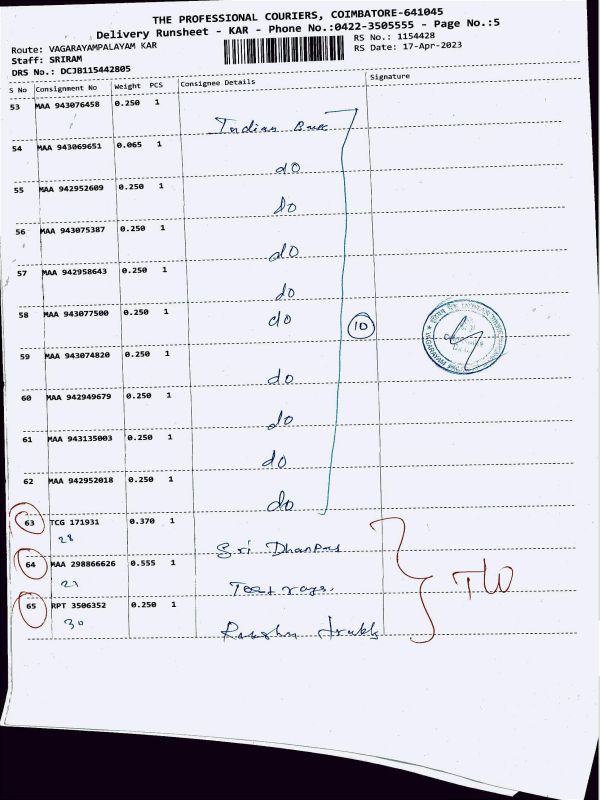 THE PROFESSIONAL COURIERS, COIMBATORE-641045
Delivery Runsheet - KAR - Phone No.:0422-3505555 - Page No.:5
Route: VAGARAYAMPALAYAM KAR
RS No.: 1154428
Staff: SRIRAM
RS Date: 17-Apr-2023
DRS No.: DCJB115442805
S No Consignment No Weight PCS Consignee Details Signature
53 MAA 943076458 0.250 1
Indian
54 MAA 943069651 0.065 1
do
55 MAA 942952609 0.250 1
do
56 MAA 943075387 0.250 1
do
57 MAA 942958643 0.250 1
do
58 MAA 943077500 0.250 1
do
10
59 MAA 943074820 0.250 1
do
60 MAA 942949679 0.250 1
do
61 MAA 943135003 0.250 1
do
62 MAA 942952018 0.250 1
do
63 TCG 171931 0.370 1
28
Sri
64 MAA 298866626 0.555 1
65 RPT 3506352 0.250 1
30